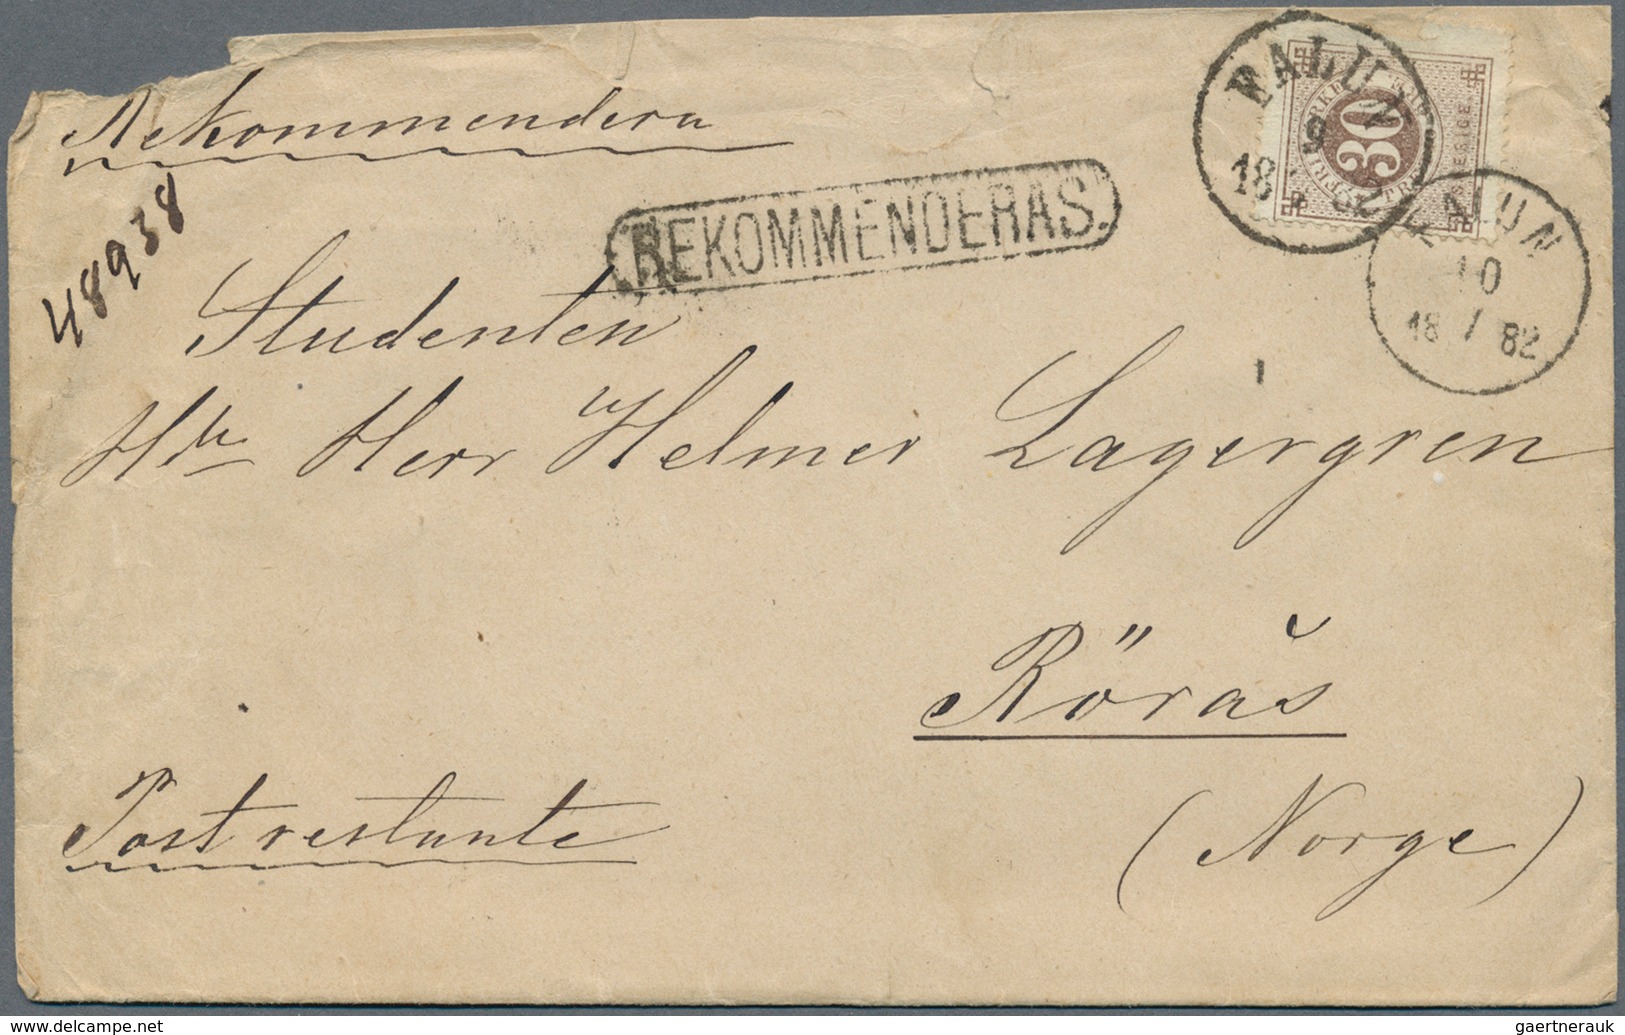 Rekommendera
48938
REKOMMENDERAS.
FALUN
9
18 82
30
SVERIGE
FALUN
10
18 / 82
Studenten
Herr Helmer Lagergren
Röras
(Norge)
Post restante
www.delcampe.net
gaertnerauk